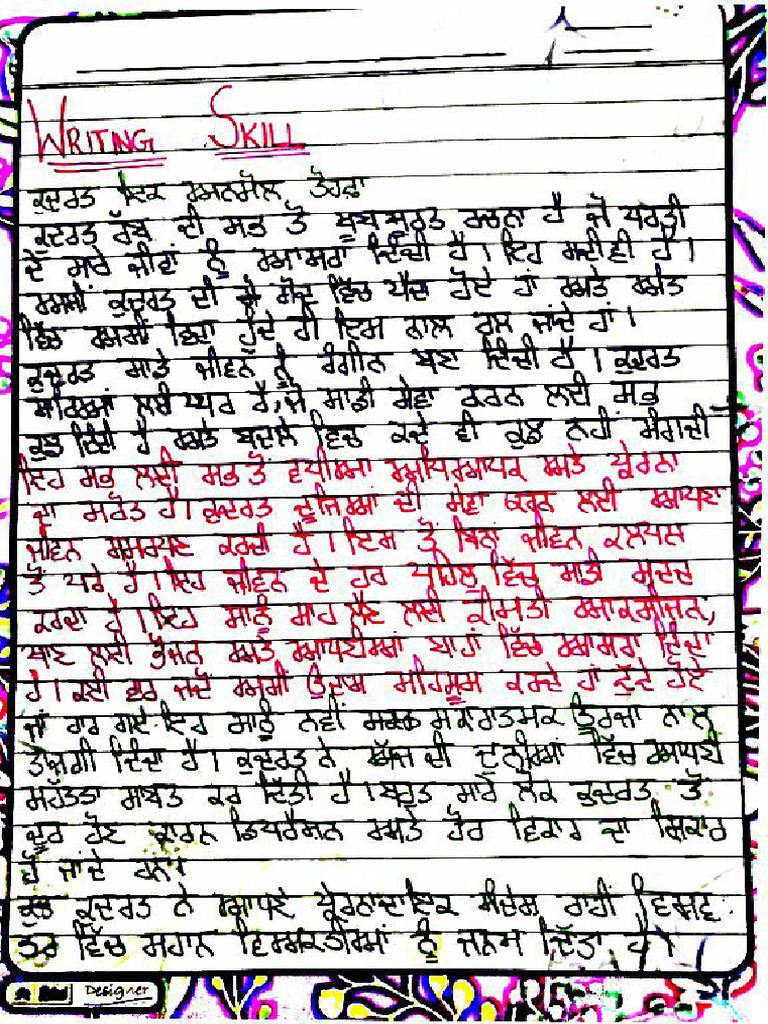 WRITING SKILL
ਕੁਦਰਤ ਇਕ ਅਨਮੋਲ ਤੋਹਫ਼ਾ
ਕੁਦਰਤ ਰੱਬ ਦੀ ਸਭ ਤੋਂ ਖੂਬਸੂਰਤ ਰਚਨਾ ਹੈ ਜੋ ਧਰਤੀ
ਦੇ ਸਾਰੇ ਜੀਵਾਂ ਨੂੰ ਆਸਰਾ ਦਿੰਦੀ ਹੈ। ਇਹ ਸਦੀਵੀ ਹੈ।
ਅਸੀਂ ਕੁਦਰਤ ਦੀ ਗੋਦ ਵਿੱਚ ਪੈਦਾ ਹੋਏ ਹਾਂ ਅਤੇ ਅੰਤ
ਵਿੱਚ ਅਸੀਂ ਵਿਦਾ ਹੁੰਦੇ ਹੀ ਇਸ ਨਾਲ ਰਲ ਜਾਂਦੇ ਹਾਂ।
ਕੁਦਰਤ ਸਾਡੇ ਜੀਵਨ ਨੂੰ ਰੰਗੀਨ ਬਣਾ ਦਿੰਦੀ ਹੈ। ਕੁਦਰਤ
ਲਈ ਘਰ ਹੈ, ਜੋ ਸਾਡੀ ਸੇਵਾ ਕਰਨ ਲਈ ਸਭ
ਕੁਝ ਦਿੰਦੀ ਹੈ ਅਤੇ ਬਦਲੇ ਵਿਚ ਕਦੇ ਵੀ ਕੁਝ ਨਹੀਂ ਮੰਗਦੀ
ਇਹ ਸਭ ਲਈ ਸਭ ਤੋਂ ਵਧੀਆ ਅਧਿਆਪਕ ਅਤੇ ਪ੍ਰੇਰਨਾ
ਦਾ ਸਰੋਤ ਹੈ। ਕੁਦਰਤ ਦੂਜਿਆਂ ਦੀ ਸੇਵਾ ਕਰਨ ਲਈ ਆਪਣਾ
ਜੀਵਨ ਸਮਰਪਣ ਕਰਦੀ ਹੈ। ਇਸ ਤੋਂ ਬਿਨਾਂ ਜੀਵਨ ਕਲਪਨਾ
ਤੋਂ ਪਰੇ ਹੈ। ਇਹ ਜੀਵਨ ਦੇ ਹਰ ਪਹਿਲੂ ਵਿੱਚ ਸਾਡੀ ਮਦਦ
ਕਰਦਾ ਹੈ। ਇਹ ਸਾਨੂੰ ਸਾਹ ਲੈਣ ਲਈ ਕੀਮਤੀ ਆਕਸੀਜਨ,
ਖਾਣ ਲਈ ਭੋਜਨ ਅਤੇ ਆਪਣੀਆਂ ਬਾਹਾਂ ਵਿੱਚ ਆਸਰਾ ਦਿੰਦਾ
ਹੈ। ਕਈ ਵਾਰ ਜਦੋਂ ਅਸੀਂ ਉਦਾਸ ਮਹਿਸੂਸ ਕਰਦੇ ਹਾਂ ਟੁੱਟੇ ਹੋਏ
ਜਾਂ ਹਾਰ ਗਏ ਇਹ ਸਾਨੂੰ ਨਵੀਂ ਸਕਾਰਾਤਮਕ ਊਰਜਾ ਨਾਲ
ਤਾਜ਼ਗੀ ਦਿੰਦਾ ਹੈ। ਕੁਦਰਤ ਨੇ ਅੱਜ ਦੀ ਦੁਨੀਆਂ ਵਿੱਚ ਆਪਣੀ
ਮਹੱਤਤਾ ਸਾਬਤ ਕਰ ਦਿੱਤੀ ਹੈ। ਬਹੁਤ ਸਾਰੇ ਲੋਕ ਕੁਦਰਤ ਤੋਂ
ਦੂਰ ਹੋਣ ਕਾਰਨ ਡਿਪਰੈਸ਼ਨ ਅਤੇ ਹੋਰ ਵਿਕਾਰ ਦਾ ਸ਼ਿਕਾਰ
ਹੋ ਜਾਂਦੇ ਹਨ।
ਕੁਝ ਕੁਦਰਤ ਨੇ ਆਪਣੇ ਪ੍ਰੇਰਨਾਦਾਇਕ ਸੰਦੇਸ਼ ਰਾਹੀਂ ਵਿਸ਼ਵ
ਭਰ ਵਿੱਚ ਮਹਾਨ ਵਿਅਕਤੀਆਂ ਨੂੰ ਜਨਮ ਦਿੱਤਾ ਹੈ।
Designer